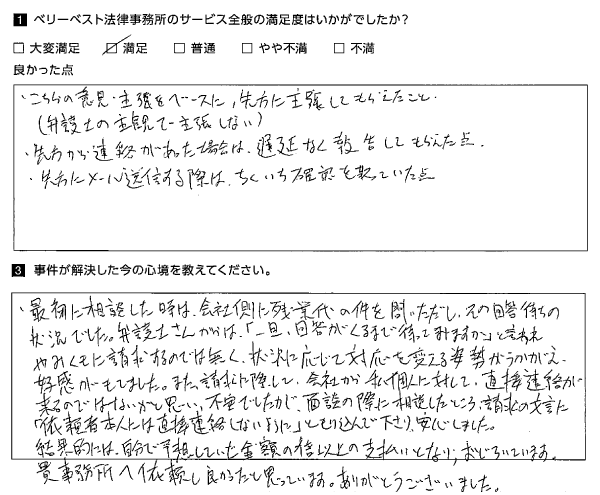 1 ベリーベスト法律事務所のサービス全般の満足度はいかがでしたか?
□ 大変満足 □ 満足 □ 普通 □ やや不満 □ 不満
良かった点
・こちらの意見・主張をベースに、先方に主張してもらえたこと.
(弁護士の主観で主張しない)
・先方から連絡があった場合は、遅延なく報告してもらえた点.
・先方にメール送信する際は、ちくいち確認を取っていた点
3 事件が解決した今の心境を教えてください。
・最初に相談した時は、会社側に残業代の件を問いただし、その回答待ちの
状況でした。弁護士さんからは、「一旦、回答がくるまで待ってみますか」と言われ
やみくもに請求するのでは無く、状況に応じて対応を変える姿勢がうかがえ、
好感がもてました。また、請求に際して、会社から私個人に対して、直接連絡が
来るのではないかと思い、不安でしたが、面談の際に相談したところ、請求の文言に
「依頼者本人には直接連絡しないように」ともり込んで下さり、安心しました。
結果的には、自分で予想していた金額の倍以上の支払いとなり、おどろいています。
貴事務所へ依頼し良かったと思っています。ありがとうございました。